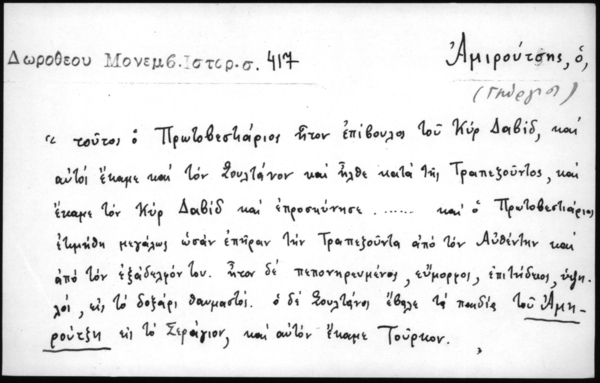 Δωροθεου Μονεμβ.Ιστορ.σ. 417
Ἀμιρούτσης, ὁ,
(Γεώργιος)
« τοῦτος ὁ Πρωτοβεστιάριος ἦτον ἐπίβουλος τοῦ Κὺρ Δαβίδ, καὶ
αὐτὸς ἔκαμε καὶ τὸν Σουλτάνον καὶ ἦλθε κατὰ τῆς Τραπεζοῦντος, καὶ
ἔκαμε τὸν Κὺρ Δαβὶδ καὶ ἐπροσκύνησε ...... καὶ ὁ Πρωτοβεστιάριος
ἐτιμήθη μεγάλως ὡσὰν ἐπῆραν τὴν Τραπεζοῦντα ἀπὸ τὸν Αὐθέντην καὶ
ἀπὸ τὸν ἐξάδελφόν του. ἦτον δὲ πεπονηρευμένος, εὔμορφος, ἐπιτήδειος, ὑψη-
λός, εἰς τὸ δοξάρι θαυμαστός. ὁ δὲ Σουλτάνος ἔβαλε τὰ παιδία τοῦ Ἀμη-
ρούτζη εἰς τὸ Σεράγιον, καὶ αὐτὸν ἔκαμε Τοῦρκον. »